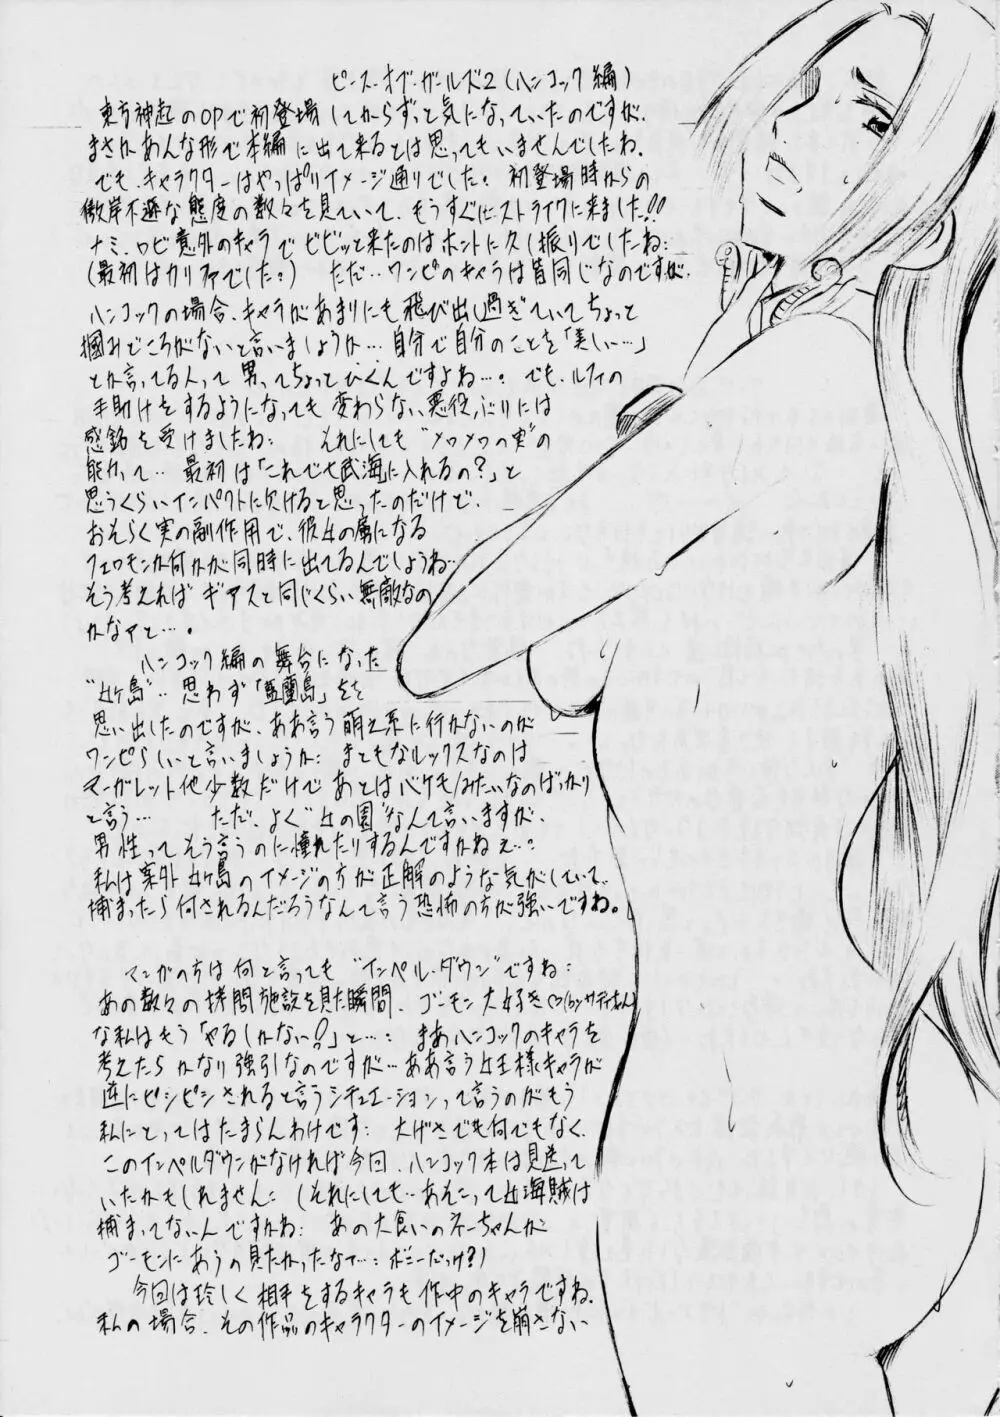 ピース・オブ・ガールズ2(ハンコック編)
東方神起のOPで初登場してからずっと気になっていたのですが、
まさかあんな形で本編に出て来るとは思ってもいませんでしたね、
でも、キャラクターはやっぱりイメージ通りでした。初登場時からの
傲岸不遜な態度の数々を見ていて、もうすぐにストライクに来ました!!
ナミ、ロビ意外のキャラでビビッと来たのはホントに久し振りでしたね:
(最初はカリファでした。) ただ…ワンピのキャラは皆同じなのですが、
ハンコックの場合、キャラがあまりにも飛び出し過ぎていてちょっと
掴みどころがないと言いましょうか…自分で自分のことを「美しい…」
とか言ってる人って男ってちょっとひくんですよね…。でも、ルフィの
手助けをするようになっても変わらない悪役ぶりには
感銘を受けましたね: それにしても"メロメロの実"の
能力って…最初は「これで七武海に入れるの?」と
思うくらいインパクトに欠けると思ったのだけど、
おそらく実の副作用で、彼女の虜になる
フェロモンか何かが同時に出てるんでしょうね…
そう考えればギアスと同じくらい無敵なの
かなァと…。
ハンコック編の舞台になった
"女ヶ島"…思わず「藍蘭島」をを
思い出したのですが、ああ言う萌え系に行かないのが
ワンピらしいと言いましょうか: まともなルックスなのは
マーガレット他少数だけであとはバケモノみたいなのばっかり
と言う… ただ、よく"女の園"なんて言いますが、
男性ってそう言うのに憧れたりするんですかねェ…?
私は案外女ヶ島のイメージの方が正解のような気がしていて、
捕まったら何されるんだろうなんて言う恐怖の方が強いですね。
マンガの方は何と言っても"インペル・ダウン"ですね:
あの数々の拷問施設を見た瞬間、ゴーモン大好き(サディちゃん)
な私はもう「やるしかない!」と…: まあハンコックのキャラを
考えたらかなり強引なのですが…ああ言う女王様キャラが
逆にピシピシされると言うシチュエーションって言うのがもう
私にとってはたまらんわけです: 大げさでも何でもなく、
このインペルダウンがなければ今回、ハンコック本は見送って
いたかもしれません: (それにしても…あそこって女海賊は
捕まってないんですかね: あの大食いのネーちゃんが
ゴーモンにあうの見たかったなァ…: ボニーだっけ?)
今回は珍しく相手をするキャラも作中のキャラですね、
私の場合、その作品のキャラクターのイメージを崩さない